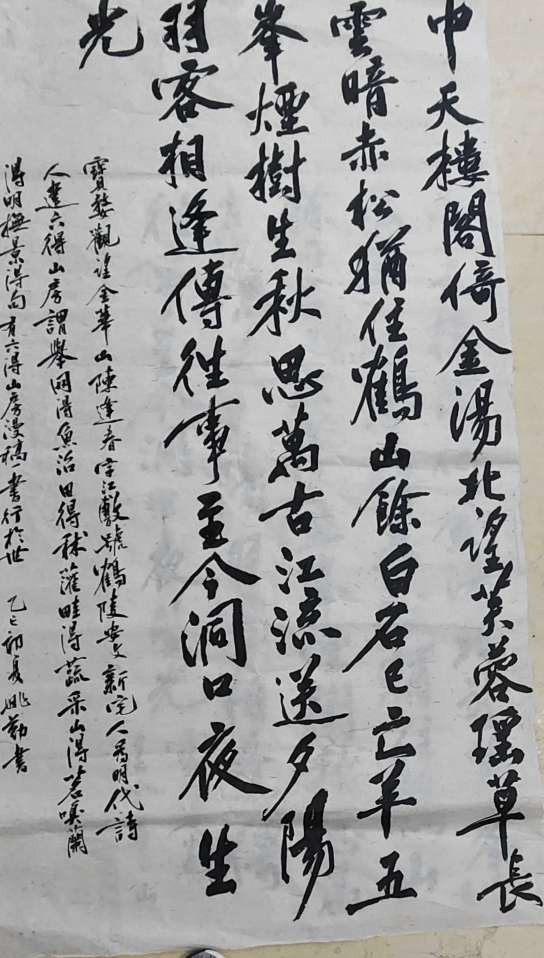 中天樓閣倚金湯北望芙蓉瑤草長
雲暗赤松猶住鶴山餘白石已亡羊五
峯煙樹生秋思萬古江流送夕陽
羽客相逢傳往事至今洞口夜生
光
寶婺觀望金華山陳達春字江皺號鶴陵安文新宅人為明代詩
人建六得山房謂舉網得魚治田得秫蓶畦得蔬采山得茗
得明撫景得句有六得山房漫稿一書行於世 乙巳初夏姚勤書